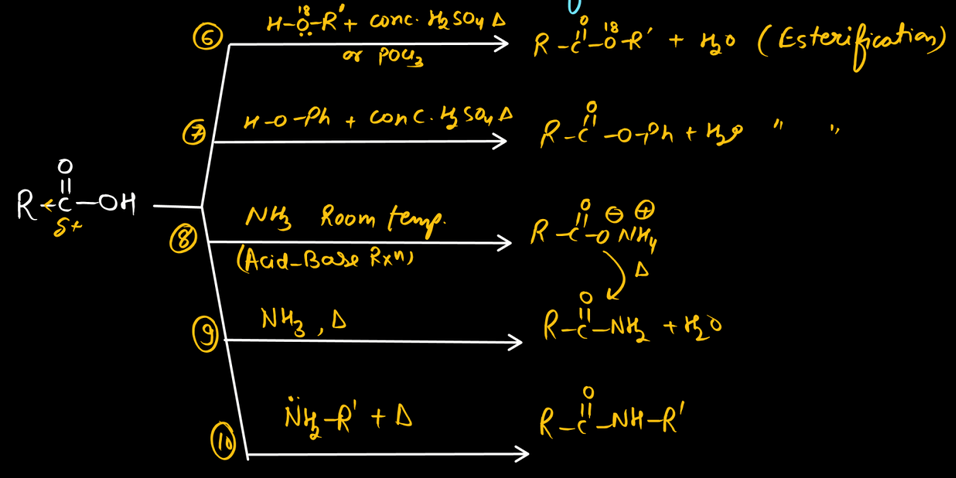 ⑥ H-Ö¹⁸-R' + conc. H₂SO₄ Δ
or POCl₃
R-C(=O)-O¹⁸-R' + H₂O (Esterification)
⑦ H-O-Ph + conc. H₂SO₄ Δ
R-C(=O)-O-Ph + H₂O " "
R-C(=O)-OH
δ+
⑧ NH₃ Room temp.
(Acid-Base Rxn)
R-C(=O)-O⊖ NH₄⊕
Δ
⑨ NH₃, Δ
R-C(=O)-NH₂ + H₂O
⑩ N̈H₂-R' + Δ
R-C(=O)-NH-R'